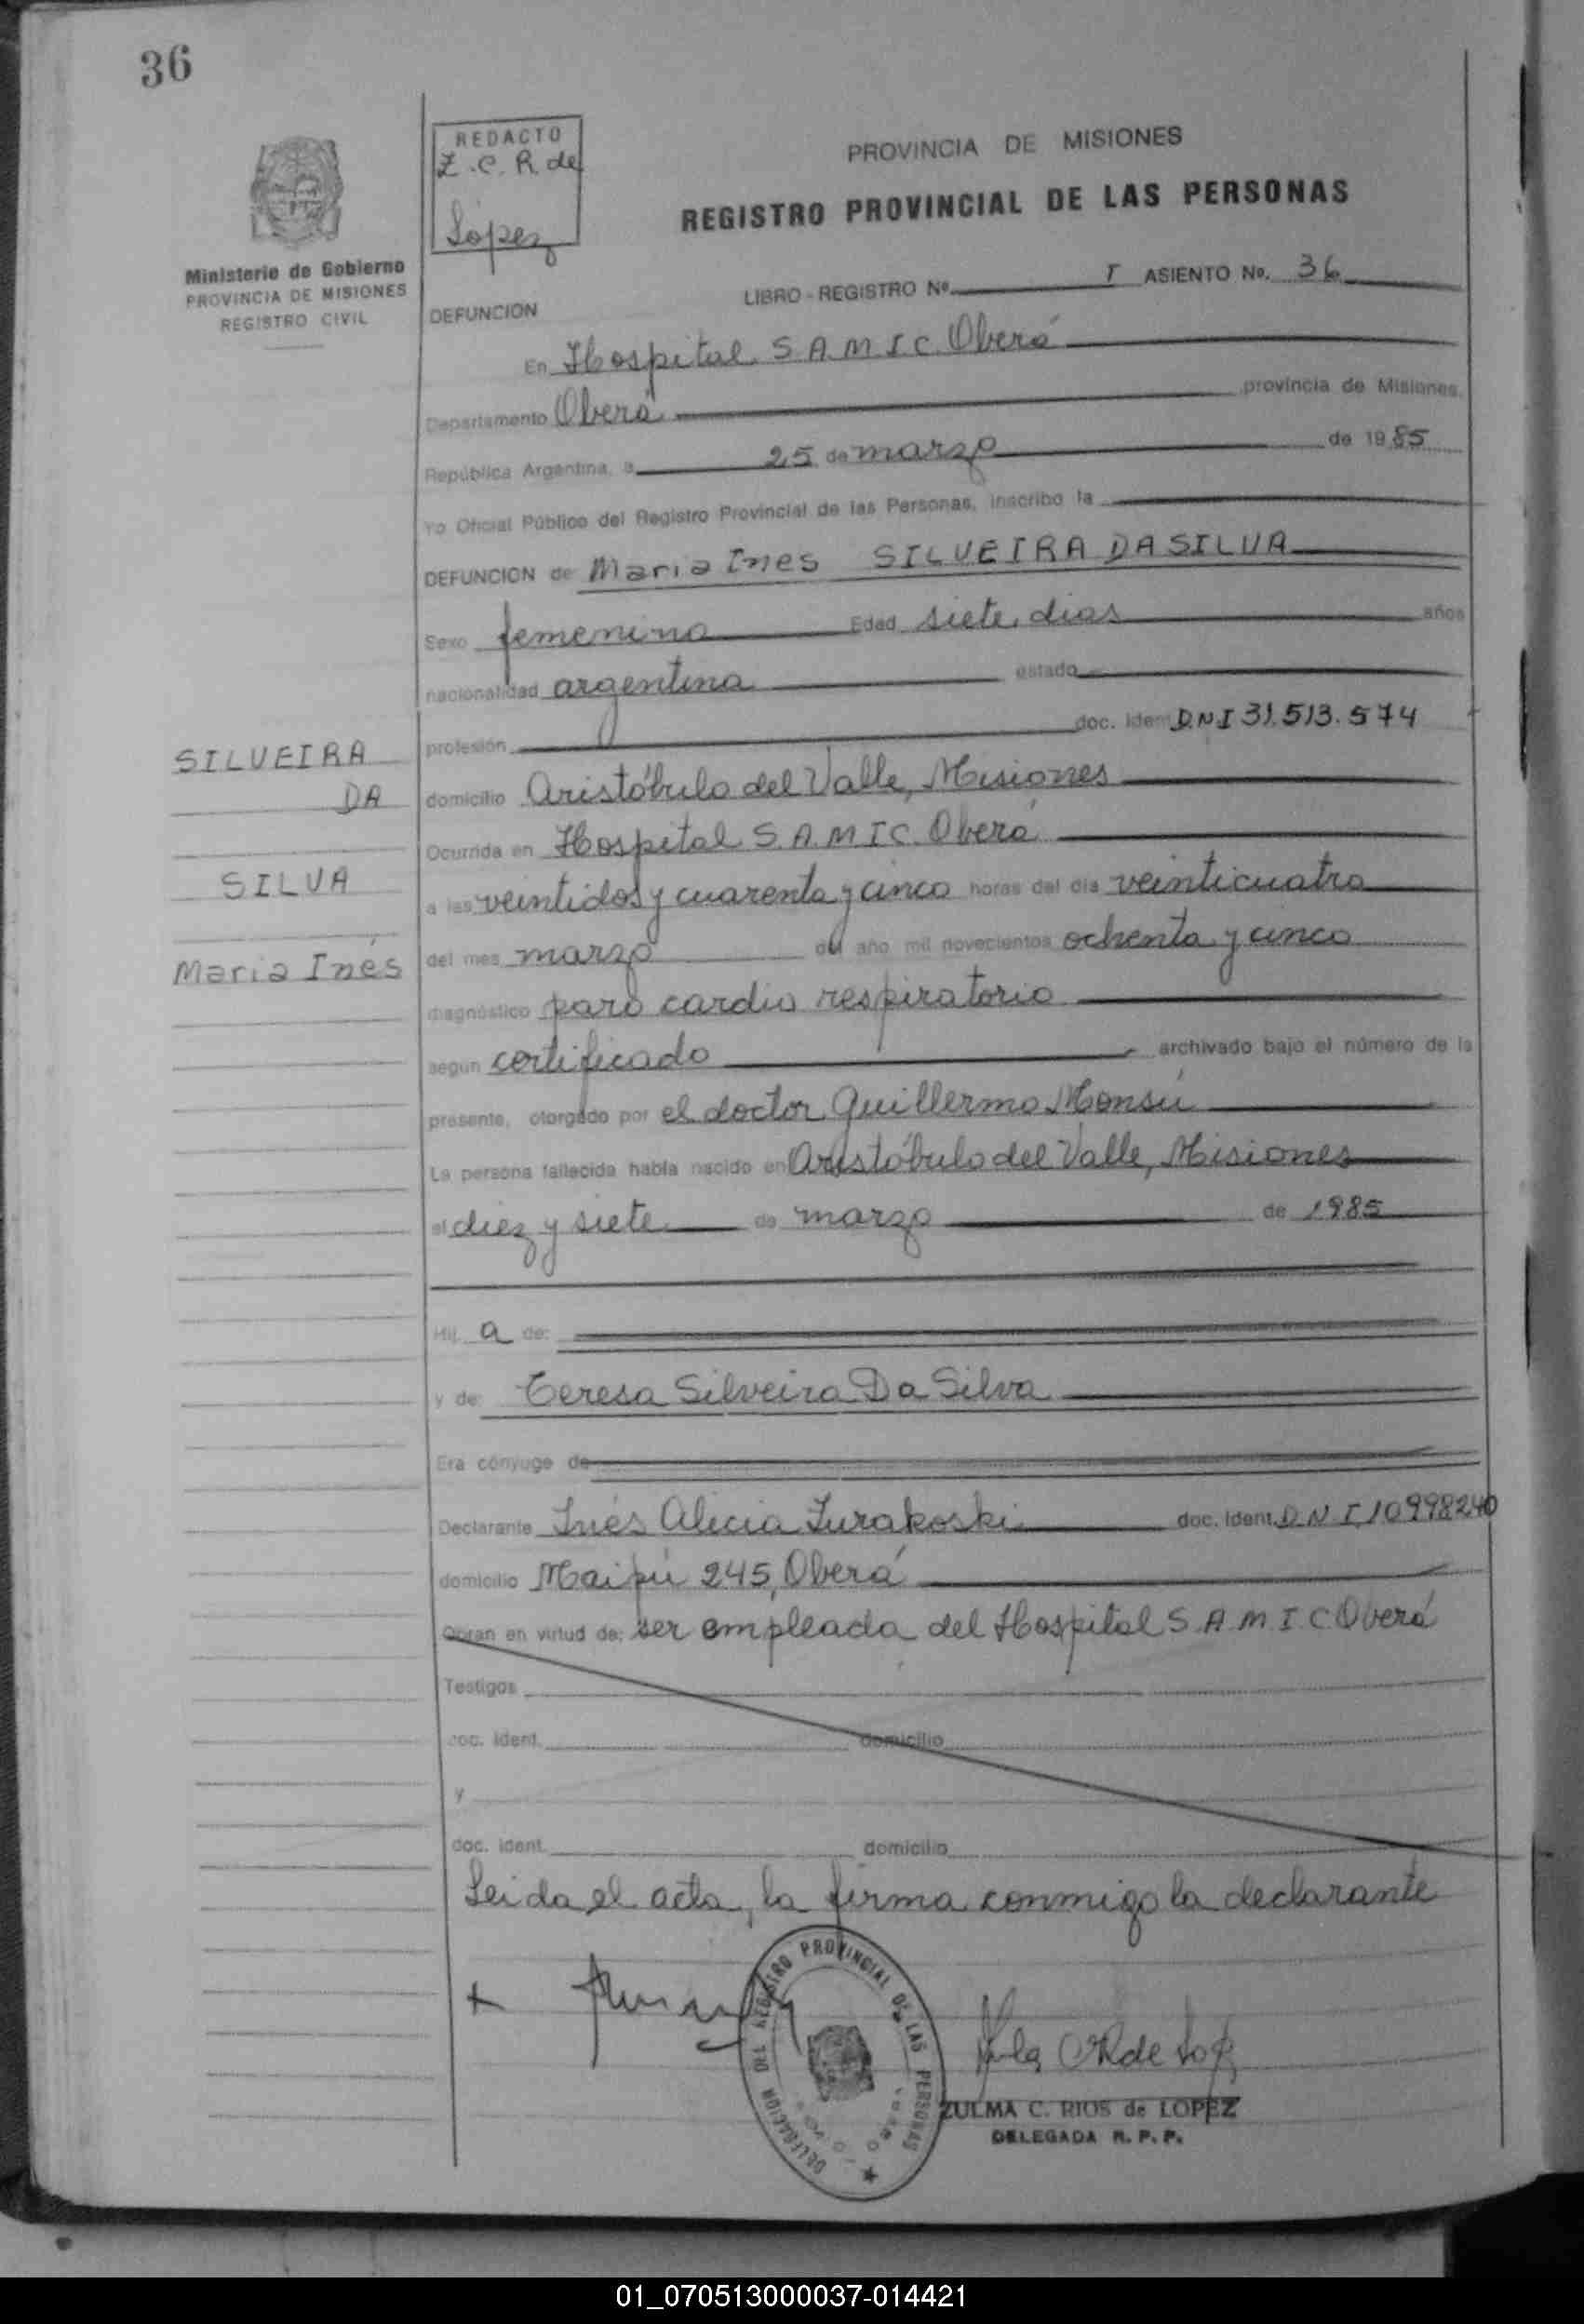 36
REDACTO
Z. C. R. de
López
PROVINCIA DE MISIONES
REGISTRO PROVINCIAL DE LAS PERSONAS
Ministerio de Gobierno
PROVINCIA DE MISIONES
REGISTRO CIVIL
LIBRO - REGISTRO Nº I ASIENTO No. 36
DEFUNCION
En Hospital S.A.M.I.C. Oberá
Departamento Oberá provincia de Misiones,
República Argentina, a 25 de marzo de 1985
Yo Oficial Público del Registro Provincial de las Personas, inscribo la
DEFUNCION de Maria Ines SILVEIRA DA SILVA
Sexo femenino Edad siete dias años
nacionalidad argentina estado
profesión doc. ident. D.N.I 31.513.574
SILVEIRA
DA
SILVA
Maria Inés
domicilio Aristóbulo del Valle, Misiones
Ocurrida en Hospital S.A.M.I.C. Oberá
a las veintidos y cuarenta y cinco horas del día veinticuatro
del mes marzo del año mil novecientos ochenta y cinco
diagnóstico paro cardio respiratorio
según certificado archivado bajo el número de la
presente, otorgado por el doctor Guillermo Monsú
La persona fallecida había nacido en Aristóbulo del Valle, Misiones
el diez y siete de marzo de 1985
Hij a de:
y de: Teresa Silveira Da Silva
Era cónyuge de
Declarante Inés Alicia Zurakoski doc. Ident. D.N.I 10998240
domicilio Maipú 245, Oberá
Obran en virtud de: ser empleada del Hospital S.A.M.I.C Oberá
Testigos
doc. ident. domicilio
y
doc. ident. domicilio
Leida el acta, la firma conmigo la declarante
DELEGACION DEL REGISTRO PROVINCIAL DE LAS PERSONAS
ZULMA C. RIOS de LOPEZ
DELEGADA R. P. P.
01_070513000037-014421